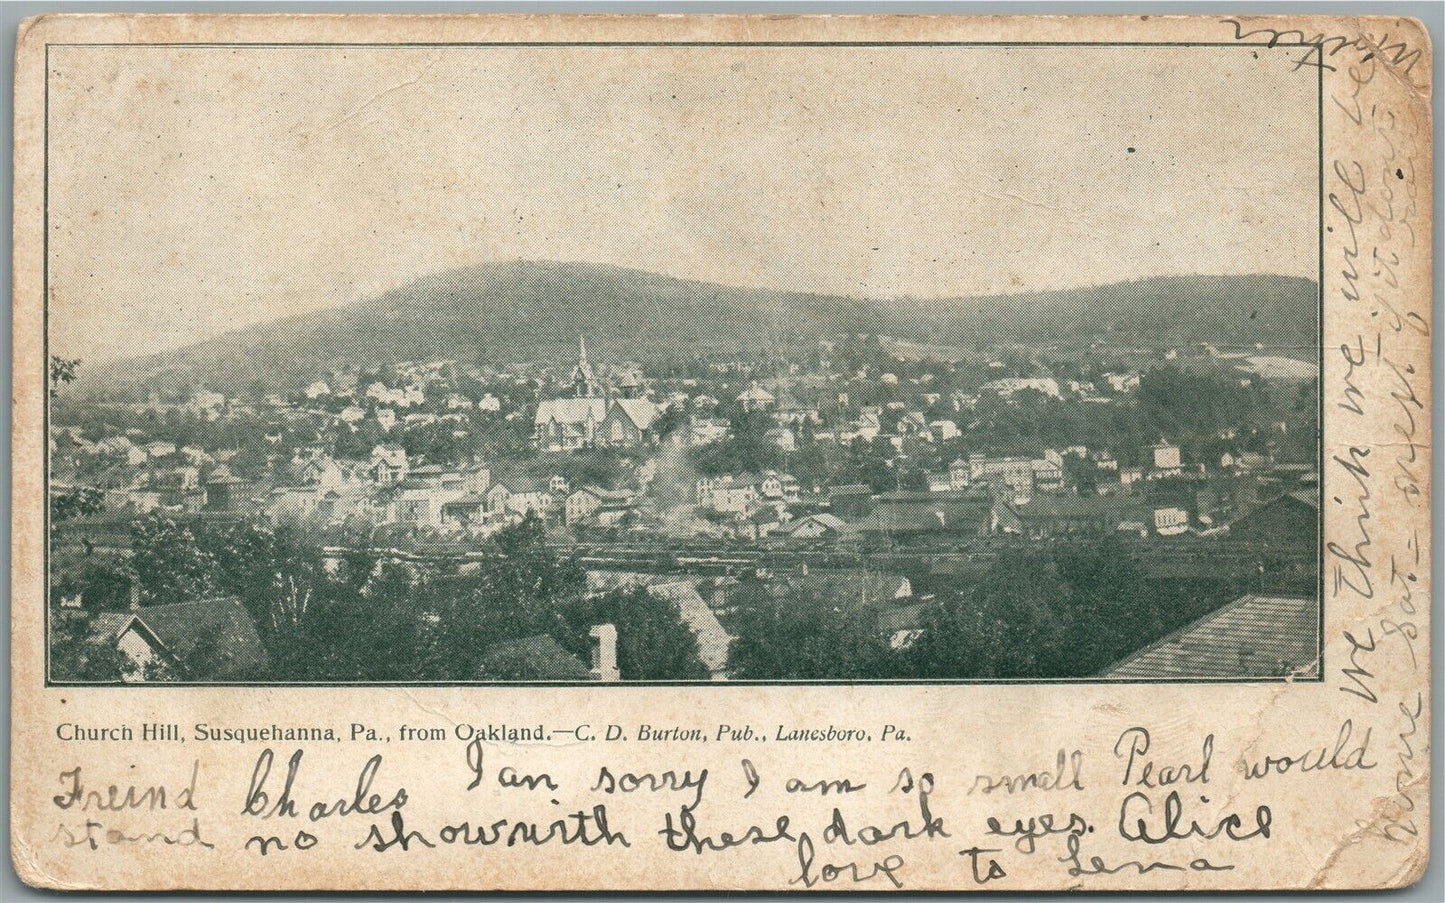 Church Hill, Susquehanna, Pa., from Oakland.—C. D. Burton, Pub., Lanesboro, Pa.
Freind Charles I an sorry I am so small Pearl would
stand no show with these dark eyes. Alice
love to Lena
We think we will be
home Sat = if it dont
Mother